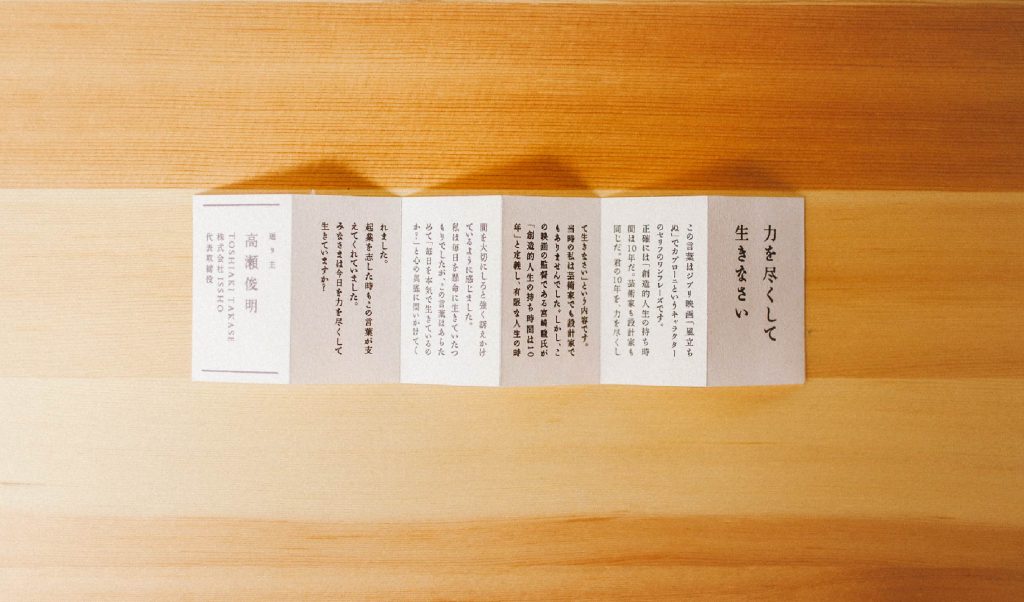 力を尽くして
生きなさい
この言葉はジブリ映画「風立ち
ぬ」でカプローニというキャラクター
のセリフのワンフレーズです。
正確には「創造的人生の持ち時
間は10年だ。芸術家も設計家も
同じだ。君の10年を、力を尽くし
て生きなさい」という内容です。
当時の私は芸術家でも設計家で
もありませんでした。しかし、こ
の映画の監督である宮崎駿氏が
「創造的人生の持ち時間は10
年」と定義し、有限な人生の時
間を大切にしろと強く訴えかけ
ているように感じました。
私は毎日を懸命に生きていたつ
もりでしたが、この言葉はあらた
めて「毎日を本気で生きているの
か？」と心の奥底に問いかけてく
れました。
起業を志した時もこの言葉が支
えてくれていました。
みなさまは今日を力を尽くして
生きていますか？
贈り主
高瀬俊明
TOSHIAKI TAKASE
株式会社ISSHO
代表取締役